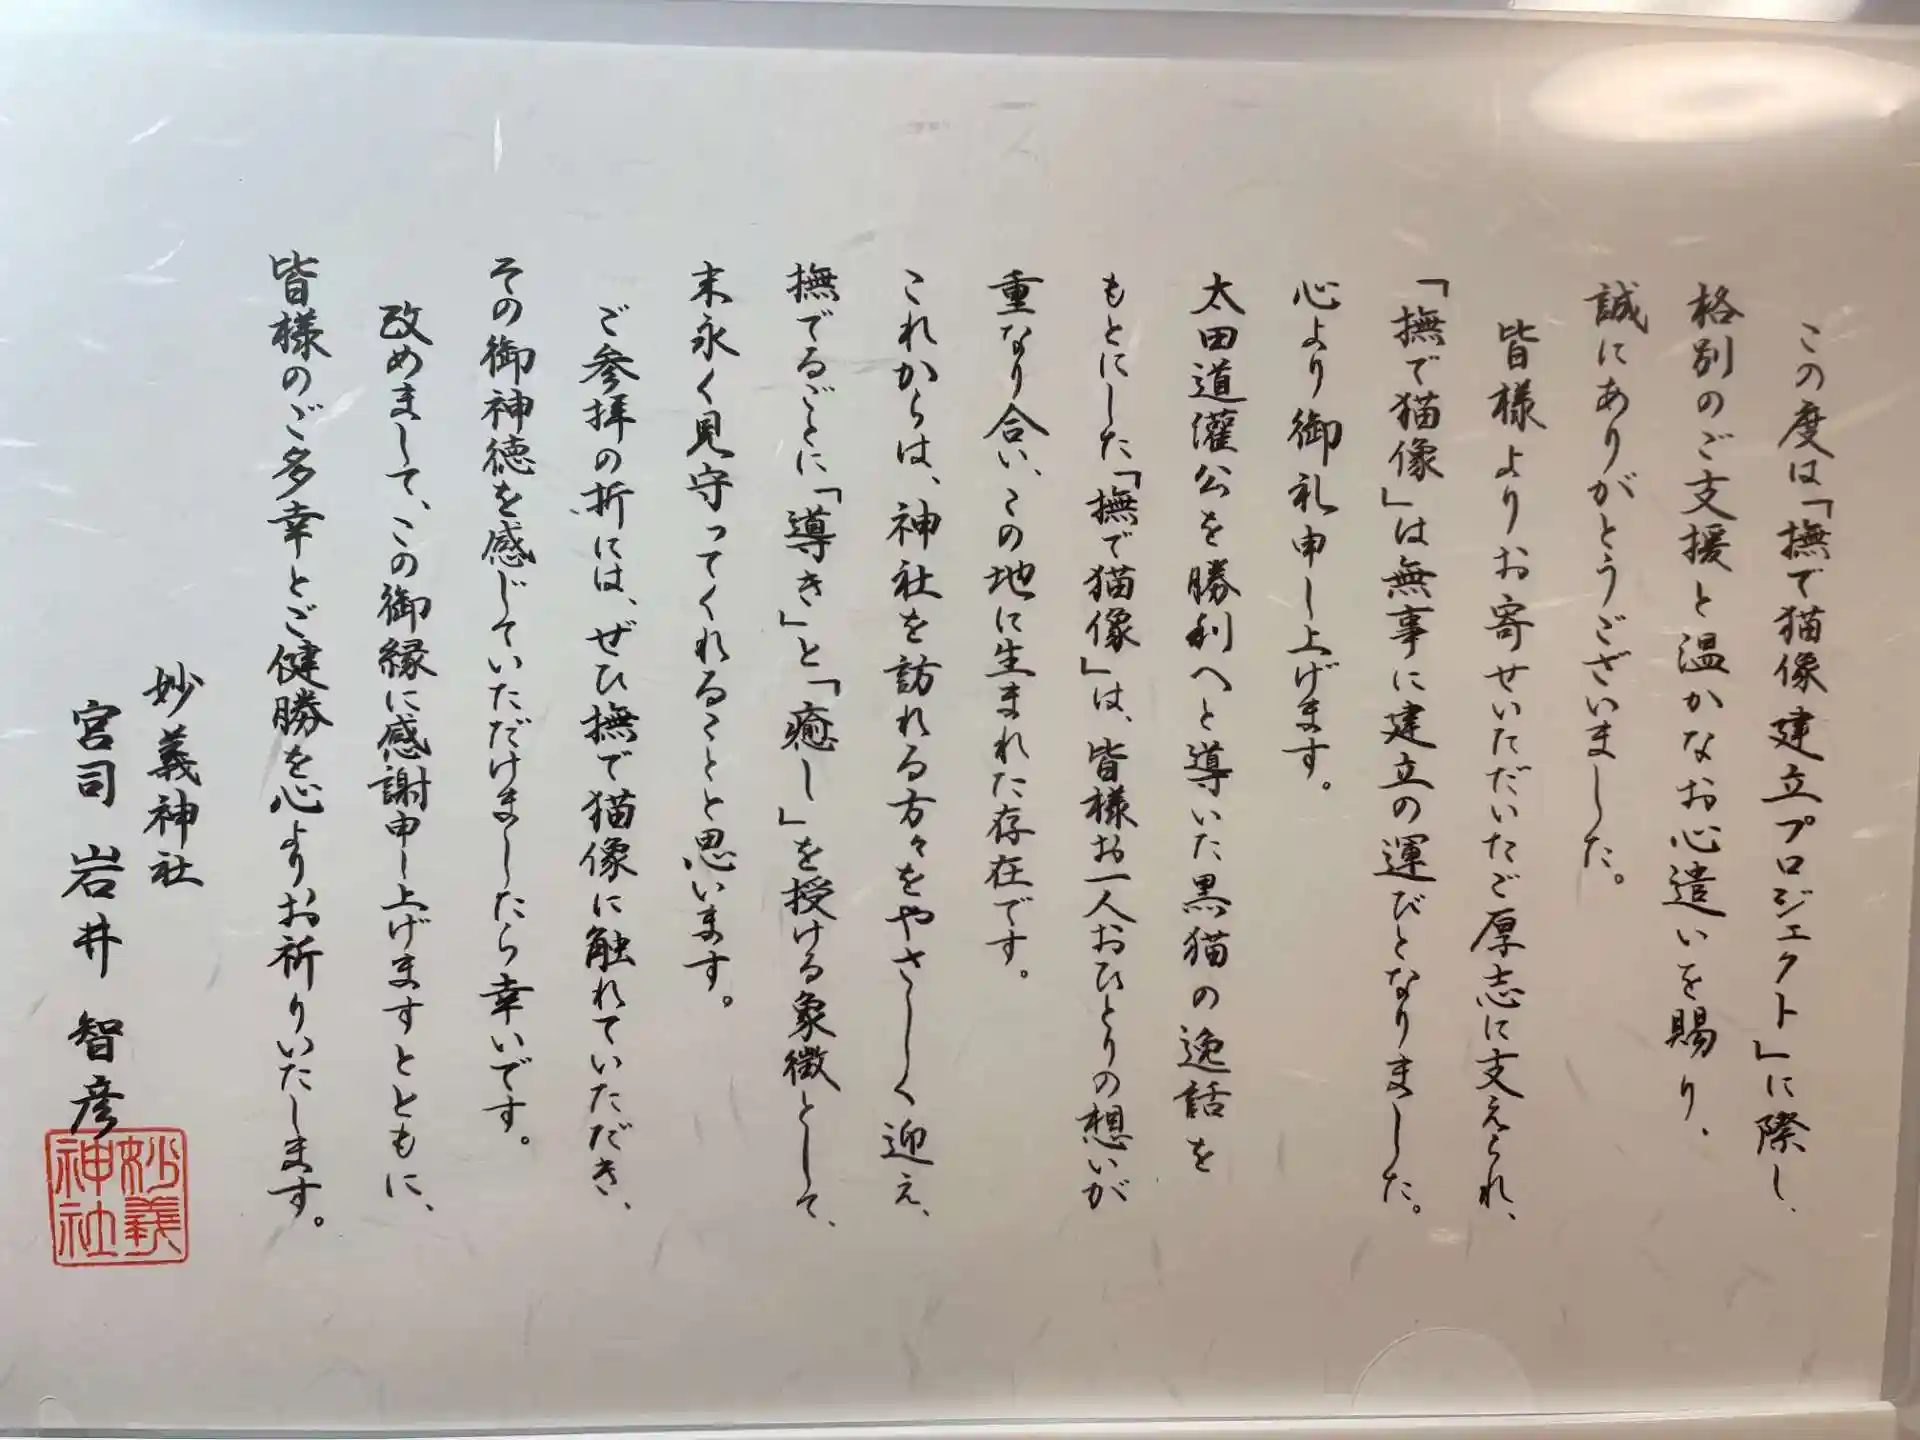 この度は「撫で猫像建立プロジェクト」に際し、
格別のご支援と温かなお心遣いを賜り、
誠にありがとうございました。
皆様よりお寄せいただいたご厚志に支えられ、
「撫で猫像」は無事に建立の運びとなりました。
心より御礼申し上げます。
太田道灌公を勝利へと導いた黒猫の逸話を
もとにした「撫で猫像」は、皆様お一人おひとりの想いが
重なり合い、この地に生まれた存在です。
これからは、神社を訪れる方々をやさしく迎え、
撫でるごとに「導き」と「癒し」を授ける象徴として、
末永く見守ってくれることと思います。
ご参拝の折には、ぜひ撫で猫像に触れていただき、
その御神徳を感じていただけましたら幸いです。
改めまして、この御縁に感謝申し上げますとともに、
皆様のご多幸とご健勝を心よりお祈りいたします。
妙義神社
宮司 岩井 智彦
妙義
神社